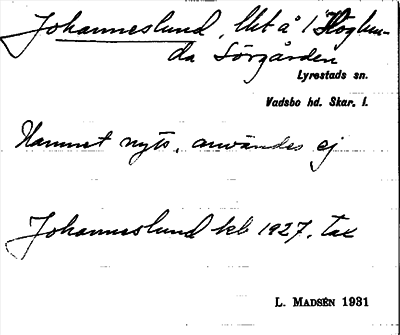 Johanneslund, lht å 1 Höglun-
da Sörgården
Lyrestads sn.
Vadsbo hd. Skar. l.
Namnet nytt, användes ej
Johanneslund hkl 1927. Tax
L. MADSÉN 1931